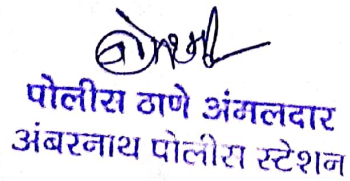 पोलीस ठाणे अंमलदार
अंबरनाथ पोलीस स्टेशन